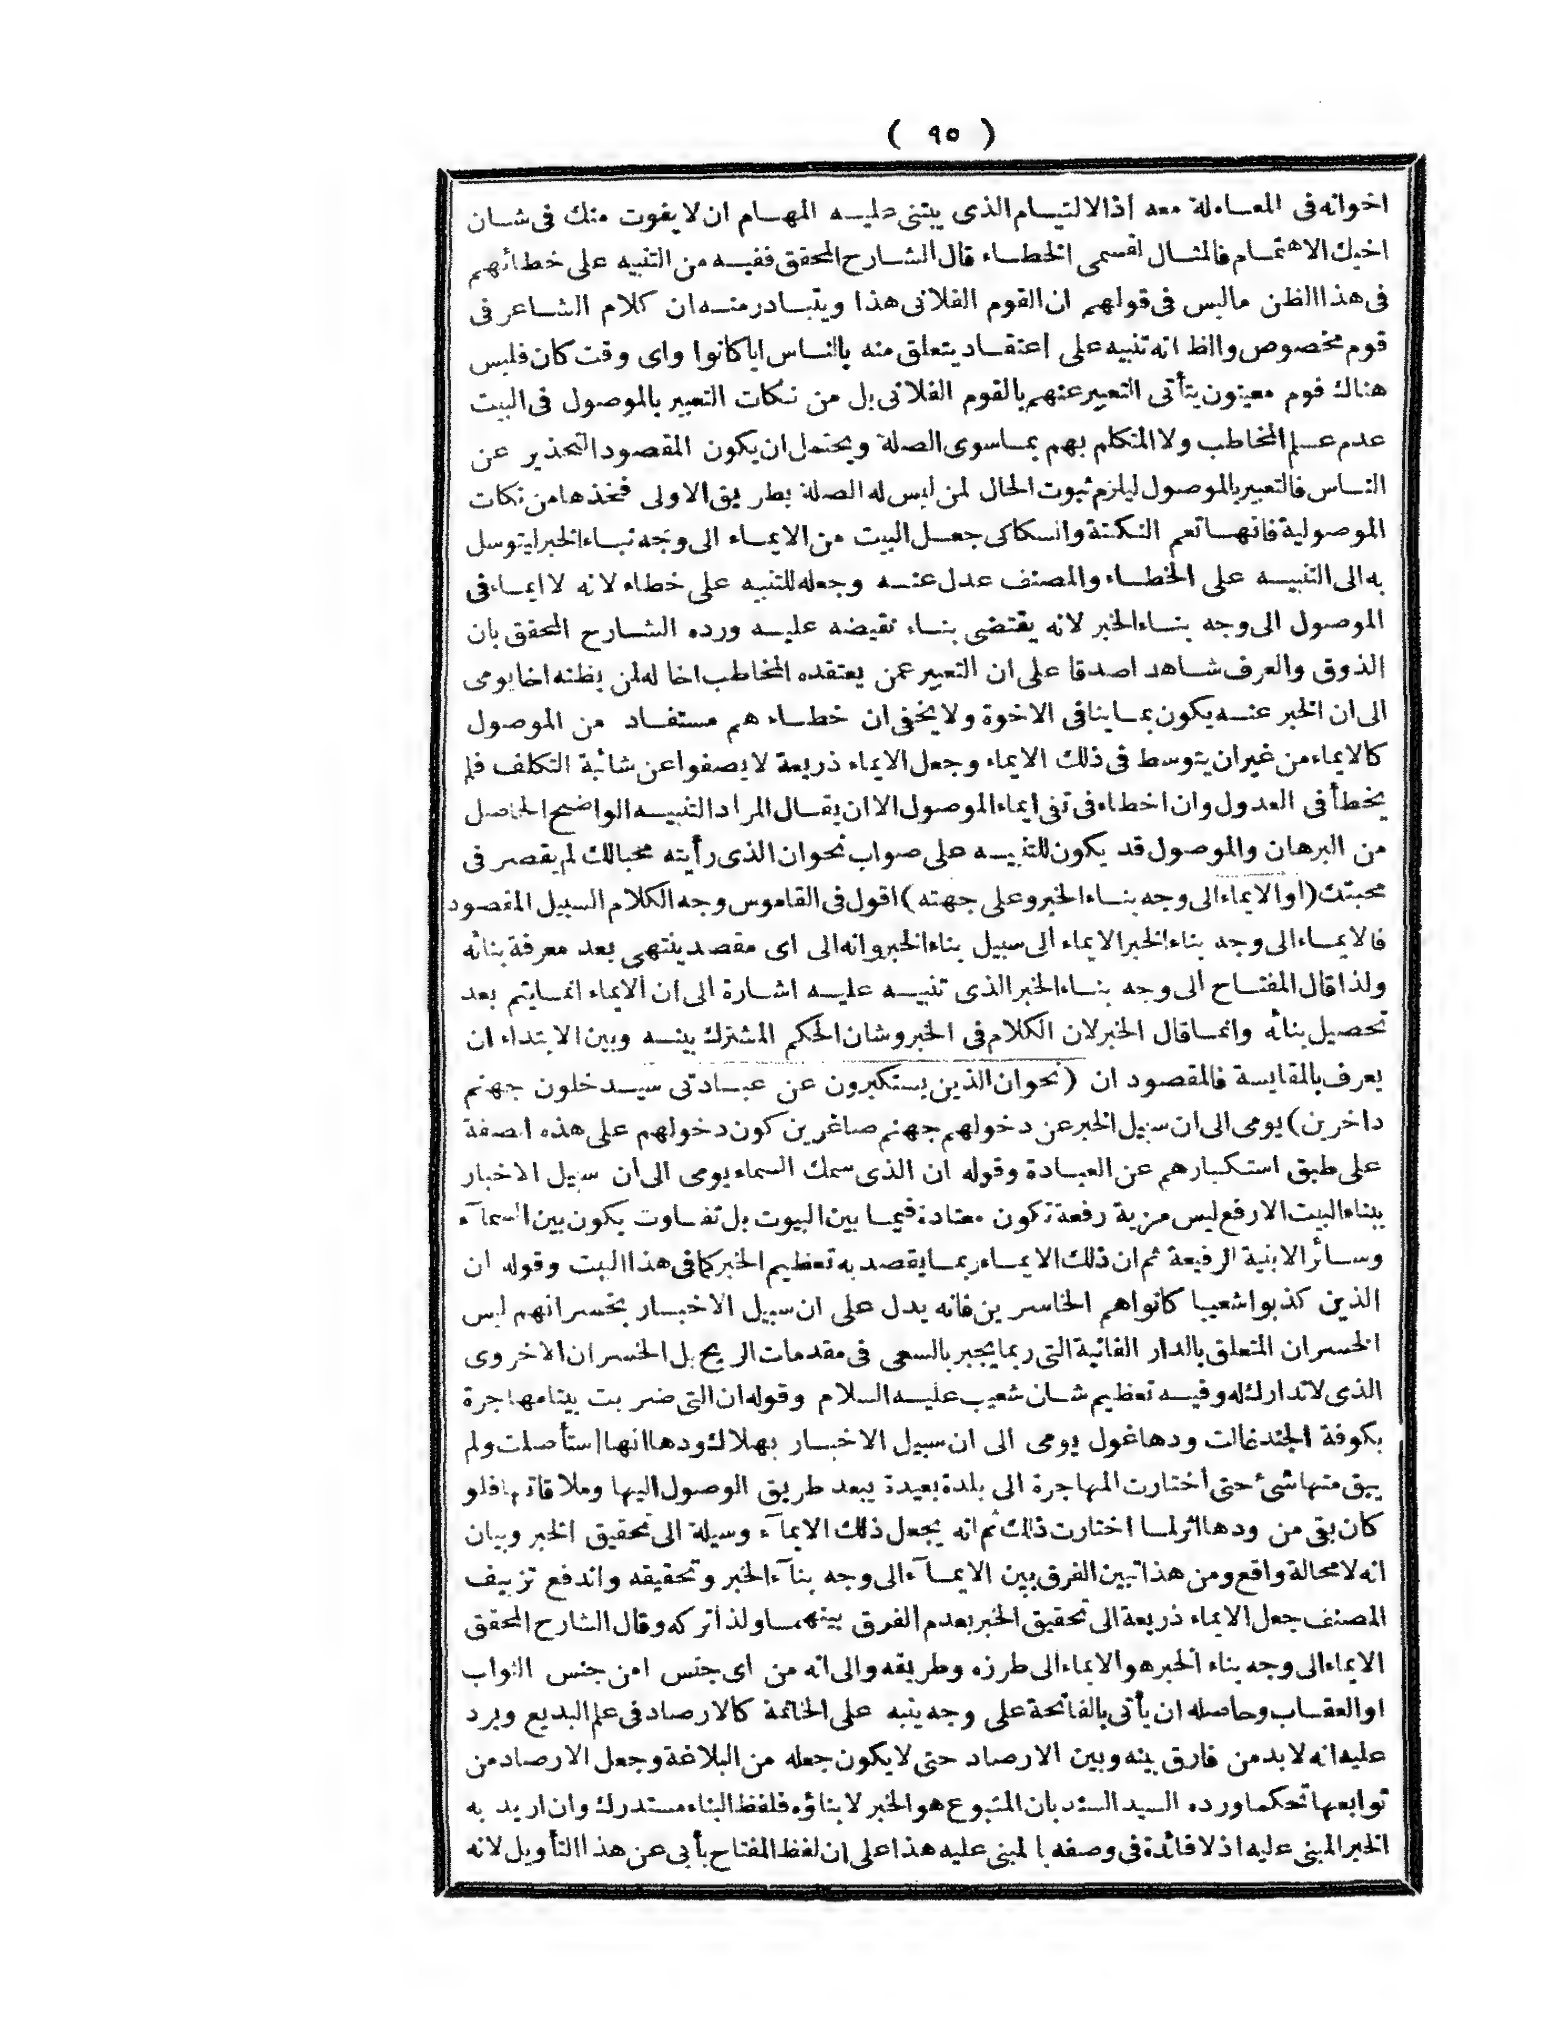 ( ٩٥ )
اخوانه فى المعاملة معه اذ الالتيام الذى يبتنى عليه المهام ان لا يفوت منك فى شان
اخيك الاهتمام فالمثال لقسمى الخطاء قال الشارح المحقق ففيه من التنبيه على خطائهم
فى هذا الظن ما ليس فى قولهم ان القوم الفلانى هذا ويتبادر منه ان كلام الشاعر فى
قوم مخصوص والظ انه تنبيه على اعتقاد يتعلق منه بالناس ايا كانوا واى وقت كان فليس
هناك قوم معينون يتأتى التعبير عنهم بالقوم الفلانى بل من نكات التعبير بالموصول فى البيت
عدم علم المخاطب ولا المتكلم بهم بما سوى الصلة ويحتمل ان يكون المقصود التحذير عن
الناس فالتعبير بالموصول ليلزم ثبوت الحال لمن ليس له الصلة بطريق الاولى فخذها من نكات
الموصولية فانها تعم النكتة والسكاكى جعل البيت من الايماء الى وجه بناء الخبر ليتوسل
به الى التنبيه على الخطاء والمصنف عدل عنه وجعله للتنبيه على خطاء لانه لا ايماء فى
الموصول الى وجه بناء الخبر لانه يقتضى بناء نقيضه عليه ورده الشارح المحقق بان
الذوق والعرف شاهد اصدقا على ان التعبير عمن يعتقده المخاطب اخا له لمن يظنه اخا يومى
الى ان الخبر عنه يكون بما ينافى الاخوة ولا يخفى ان خطاء هم مستفاد من الموصول
كالايماء من غير ان يتوسط فى ذلك الايماء وجعل الايماء ذريعة لا يصفوا عن شائبة التكلف فلم
يخطأ فى العدول وان اخطاء فى نفى ايماء الموصول الا ان يقال المراد التنبيه الواضح الحاصل
من البرهان والموصول قد يكون للتنبيه على صواب نحو ان الذى رأيته محبالك لم يقصر فى
محبتك (او الايماء الى وجه بناء الخبر وعلى جهته) اقول فى القاموس وجه الكلام السبيل المقصود
فالايماء الى وجه بناء الخبر الايماء الى سبيل بناء الخبر وانه الى اى مقصد ينتهى بعد معرفة بنائه
ولذا قال المفتاح الى وجه بناء الخبر الذى تنبيه عليه اشارة الى ان الايماء انما يتم بعد
تحصيل بنائه وانما قال الخبر لان الكلام فى الخبر وشان الحكم المشترك بينه وبين الابتداء ان
يعرف بالمقايسة فالمقصود ان (نحو ان الذين يستكبرون عن عبادتى سيدخلون جهنم
داخرين) يومى الى ان سبيل الخبر عن دخولهم جهنم صاغرين كون دخولهم على هذه الصفة
على طبق استكبارهم عن العبادة وقوله ان الذى سمك السماء يومى الى ان سبيل الاخبار
ببناء البيت الارفع ليس مزية رفعة تكون معتادة فيما بين البيوت بل تفاوت يكون بين السمآء
وسائر الابنية الرفيعة ثم ان ذلك الايماء ربما يقصد به تعظيم الخبر كما فى هذا البيت وقوله ان
الذين كذبوا شعيبا كانوا هم الخاسرين فانه يدل على ان سبيل الاخبار بخسرانهم ليس
الخسران المتعلق بالدار الفانية التى ربما يجبر بالسعى فى مقدمات الربح بل الخسران الاخروى
الذى لا تدارك له وفيه تعظيم شان شعيب عليه السلام وقوله ان التى ضربت بيتا مهاجرة
بكوفة الجند غالت ودها غول يومى الى ان سبيل الاخبار بهلاك ودها انها استأصلت ولم
يبق منها شئ حتى اختارت المهاجرة الى بلدة بعيدة يبعد طريق الوصول اليها وملاقاتها فلو
كان بقى من ودها اثر لما اختارت ذلك ثم انه يجعل ذلك الايمآء وسيلة الى تحقيق الخبر وبيان
انه لا محالة واقع ومن هذا تبين الفرق بين الايمآء الى وجه بنآء الخبر وتحقيقه واندفع تزييف
المصنف جعل الايماء ذريعة الى تحقيق الخبر بعدم الفرق بينهما ولذا تركه وقال الشارح المحقق
الايماء الى وجه بناء الخبر هو الايماء الى طرزه وطريقه والى انه من اى جنس امن جنس الثواب
او العقاب وحاصله ان يأتى بالفاتحة على وجه ينبه على الخاتمة كالارصاد فى علم البديع ويرد
عليه انه لا بد من فارق بينه وبين الارصاد حتى لا يكون جعله من البلاغة وجعل الارصاد من
توابعها تحكما ورده السيد السند بان المتبوع هو الخبر لا بناؤه فلفظ البناء مستدرك وان اريد به
الخبر المبنى عليه اذ لا فائدة فى وصفه بالمبنى عليه هذا على ان لفظ المفتاح يأبى عن هذا التأويل لانه